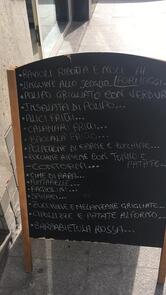 - RAVIOLI RICOTTA E NOCI AI
- LINGUINE ALLO SCOGLIO FORMAGGI
- POLIPO GRIGLIATO CON VERDUR
- INSALATA DI POLIPO...
- ALICI FRITTI...
- CALAMARI FRITTI...
- BACCALÀ FRITTO...
- POLPETTINE DI CARNE E ZUCCHINE...
- ZUCCHINE RIPIENE CON TONNO E
PATATE
- CONTORNI
- CIME DI RAPA...
- PUNTARELLE...
- FAGIOLINI...
- SPINACI...
- ZUCCHINE E MELANZANE GRIGLIATE...
- CIPOLLINE E PATATE AL FORNO...
- BARBABIETOLA ROSSA...